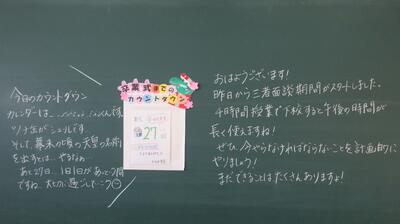 今日のカウントダウン
カレンダーは、
ツノ缶がシュールです
そして、幕末の頃の天皇の名前
を出すとは… やるなぁ…
あと27日、1日1日があっという間
ですね。大切に過ごしたーーク
卒業式までの
カウントダウン
27
おはようございます!
昨日から三者面談期間がスタートしました。
4時間授業で下校すると午後の時間が
長く使えますね!
ぜひ、今やらなければならないことを計画的に
やりましょう!
まだできることはたくさんありますよ!